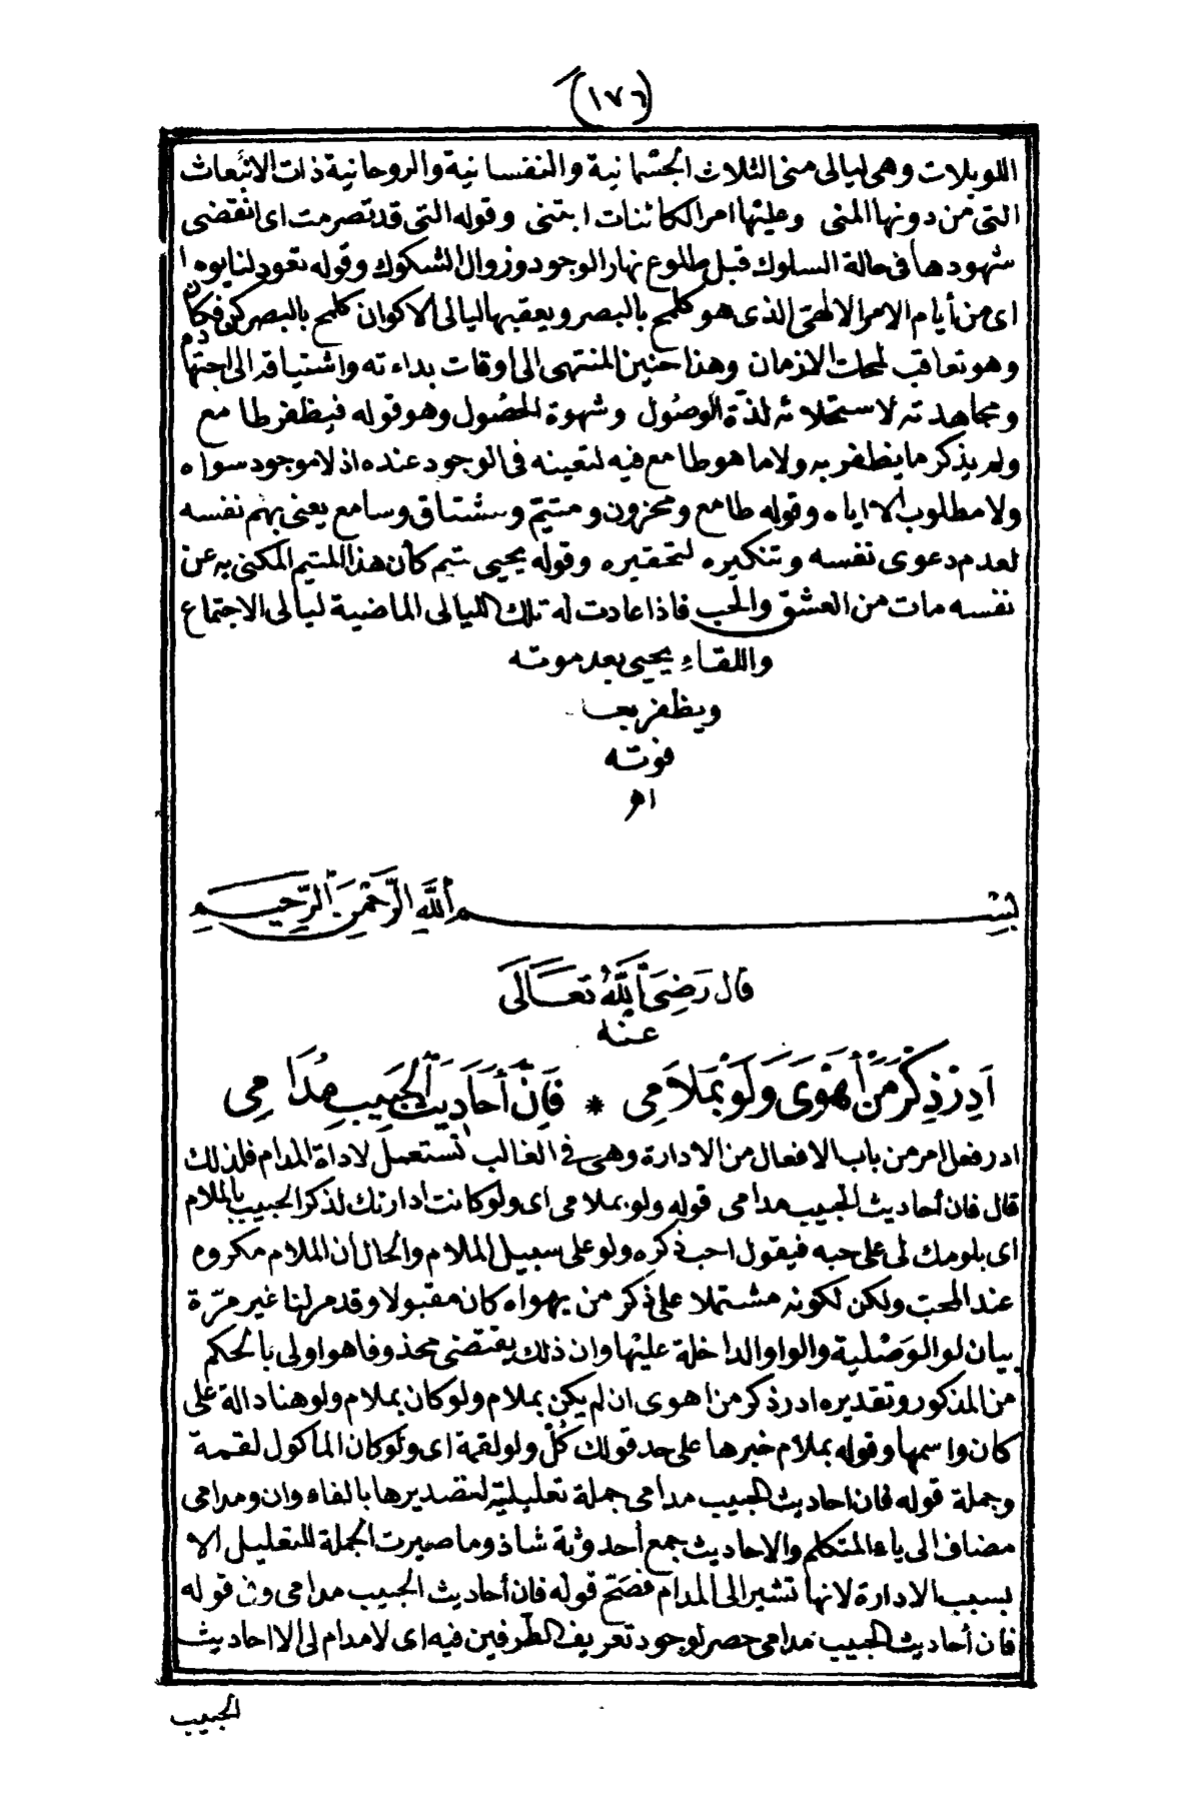 (١٧٦)
اللويلات وهى ليالى منى الثلاث الجسمانية والنفسانية والروحانية ذات الانبعاث
التى من دونها المنى وعليها امر الكائنات ابتنى وقوله التى قد تصرمت اى انقضى
شهودها فى حالة السلوك قبل طلوع نهار الوجود وزوال الشكوك وقوله تعود لنا يوما
اى من أيام الامر الالهى الذى هو كلمح بالبصر ويعقبها ليالى الاكوان كلمح بالبصر كن فكان
وهو تعاقب لمحات الازمان وهذا حنين المنتهى الى اوقات بداءته واشتياقه الى اجتهاده
ومجاهدته لاستحلائه لذّة الوصُول وشهوة الحصُول وهو قوله فيظفر طامع
ولم يذكر ما يظفر به ولا ما هو طامع فيه لتعينه فى الوجود عنده اذ لا موجود سواه
ولا مطلوب الا اياه وقوله طامع ومحزون ومتيّم ومشتاق وسامع يعنى بهم نفسه
لعدم دعوى نفسه وتنكيره لتحقيره وقوله يحيى متيم كأن هذا المتيم المكنى به عن
نفسه مات من العشق والحب فاذا عادت له تلك الليالى الماضية ليالى الاجتماع
واللقاءِ يحيى بعد موته
ويظفر بعد
فوته
اه
بِسْمِ اللَّهِ الرَّحْمَنِ الرَّحِيمِ
قال رَضِىَ اللَّهُ تَعَالَى
عَنْه
اَدِرْ ذِكْرَ مَنْ أَهْوَى وَلَوْ بِمَلَامِى * فَاِنَّ أَحَادِيثَ الحَبِيبِ مُدَامِى
ادر فعل امر من باب الافعال من الادارة وهى فى الغالب تستعمل لاداة المدام فلذلك
قال فان أحاديث الحبيب مدامى قوله ولو بملامى اى ولو كانت ادارتك لذكر الحبيب بالملام
اى بلومك لى على حبه فيقول احب ذكره ولو على سبيل الملام والحال أن الملام مكروه
عند المحب ولكن لكونه مشتملا على ذكر من يهواه كان مقبولا وقد مر لنا غير مرّة
بيان لو الوَصْلية والواو الداخلة عليها وان ذلك يقتضى محذوفا هو اولى بالحكم
من المذكور وتقديره ادر ذكر من اهوى ان لم يكن بملام ولو كان بملام ولو هنا دالة على
كان واسمها وقوله بملام خبرها على حد قولك كُلْ ولو لقمة اى ولو كان المأكول لقمة
وجملة قوله فان احاديث الحبيب مدامى جملة تعليلية لتصديرها بالفاء وان ومدامى
مضاف الى ياء المتكلم والاحاديث جمع أحدوثة شاذ وما صيرت الجملة للتعليل الا
بسبب الادارة لانها تشير الى المدام فصَحّ قوله فان أحاديث الحبيب مدامى وفى قوله
فان أحاديث الحبيب مدامى حصر لوجود تعريف الطرفين فيه اى لا مدام لى الا احاديث
الحبيب